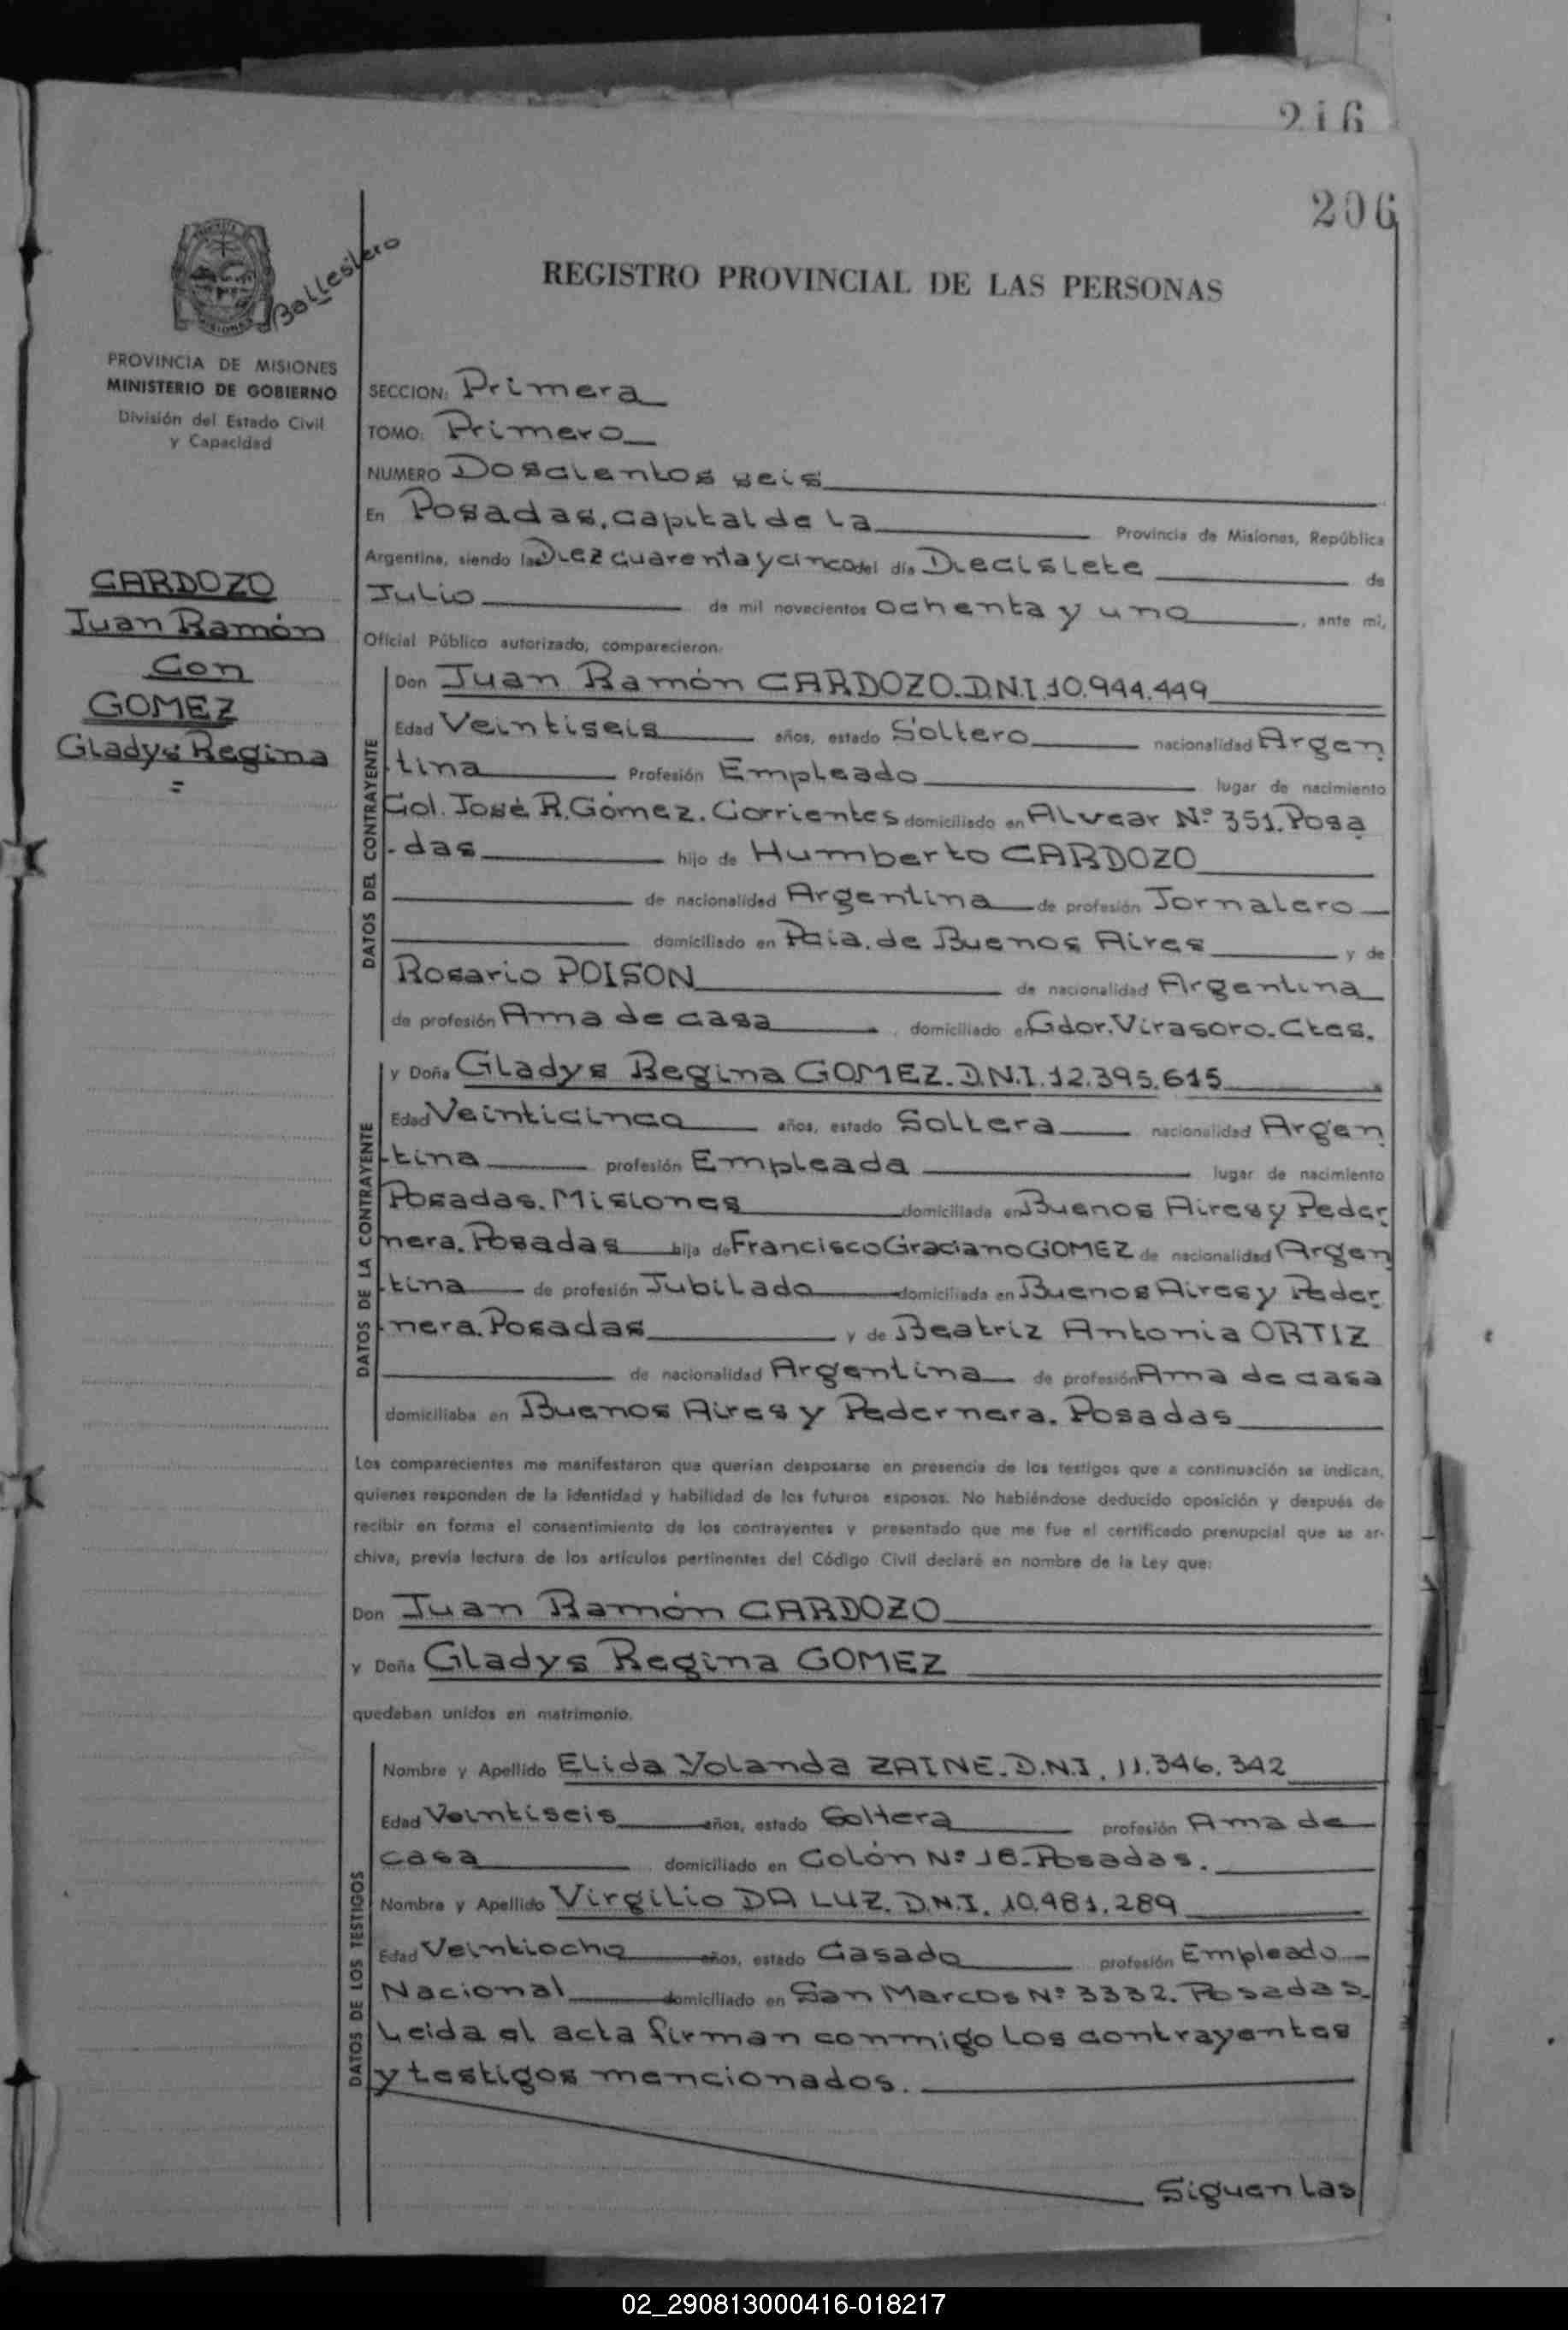 216
206
Ballestero
REGISTRO PROVINCIAL DE LAS PERSONAS
PROVINCIA DE MISIONES
MINISTERIO DE GOBIERNO
División del Estado Civil
y Capacidad
CARDOZO
Juan Ramón
Con
GOMEZ
Gladys Regina
=
SECCION: Primera
TOMO: Primero
NUMERO Doscientos seis
En Posadas, capital de La Provincia de Misiones, República
Argentina, siendo las Diez cuarenta y cinco del día Diecisiete de
Julio de mil novecientos ochenta y uno, ante mí,
Oficial Público autorizado, comparecieron:
DATOS DEL CONTRAYENTE
Don Juan Ramón CARDOZO. D.N.I. 10.944.449
Edad Veintiseis años, estado Soltero nacionalidad Argen
-tina Profesión Empleado lugar de nacimiento
Col. José R. Gómez. Corrientes domiciliado en Alvear Nº 351. Posa
-das hijo de Humberto CARDOZO
de nacionalidad Argentina de profesión Jornalero
domiciliado en Pcia. de Buenos Aires y de
Rosario POISON de nacionalidad Argentina
de profesión Ama de casa, domiciliado en Gdor. Virasoro. Ctes.
DATOS DE LA CONTRAYENTE
y Doña Gladys Regina GOMEZ. D.N.I. 12.395.615
Edad Veinticinco años, estado Soltera nacionalidad Argen
-tina profesión Empleada lugar de nacimiento
Posadas. Misiones domiciliada en Buenos Aires y Peder
nera. Posadas hija de Francisco Graciano GOMEZ de nacionalidad Argen
-tina de profesión Jubilado domiciliada en Buenos Aires y Peder
-nera. Posadas y de Beatriz Antonia ORTIZ
de nacionalidad Argentina de profesión Ama de casa
domiciliaba en Buenos Aires y Pedernera. Posadas
Los comparecientes me manifestaron que querían desposarse en presencia de los testigos que a continuación se indican,
quienes responden de la identidad y habilidad de los futuros esposos. No habiéndose deducido oposición y después de
recibir en forma el consentimiento de los contrayentes y presentado que me fue el certificado prenupcial que se ar-
chiva, previa lectura de los artículos pertinentes del Código Civil declaré en nombre de la Ley que:
Don Juan Ramón CARDOZO
y Doña Gladys Regina GOMEZ
quedaban unidos en matrimonio.
DATOS DE LOS TESTIGOS
Nombre y Apellido Elida Yolanda ZAINE. D.N.I. 11.346.342
Edad Veintiseis años, estado Soltera profesión Ama de
casa domiciliado en Colón Nº 18. Posadas.
Nombre y Apellido Virgilio DA LUZ. D.N.I. 10.981.289
Edad Veintiocho años, estado Casado profesión Empleado
Nacional domiciliado en San Marcos Nº 3332. Posadas.
Leida el acta firman conmigo los contrayentes
y testigos mencionados.
Siguen las
02_290813000416-018217